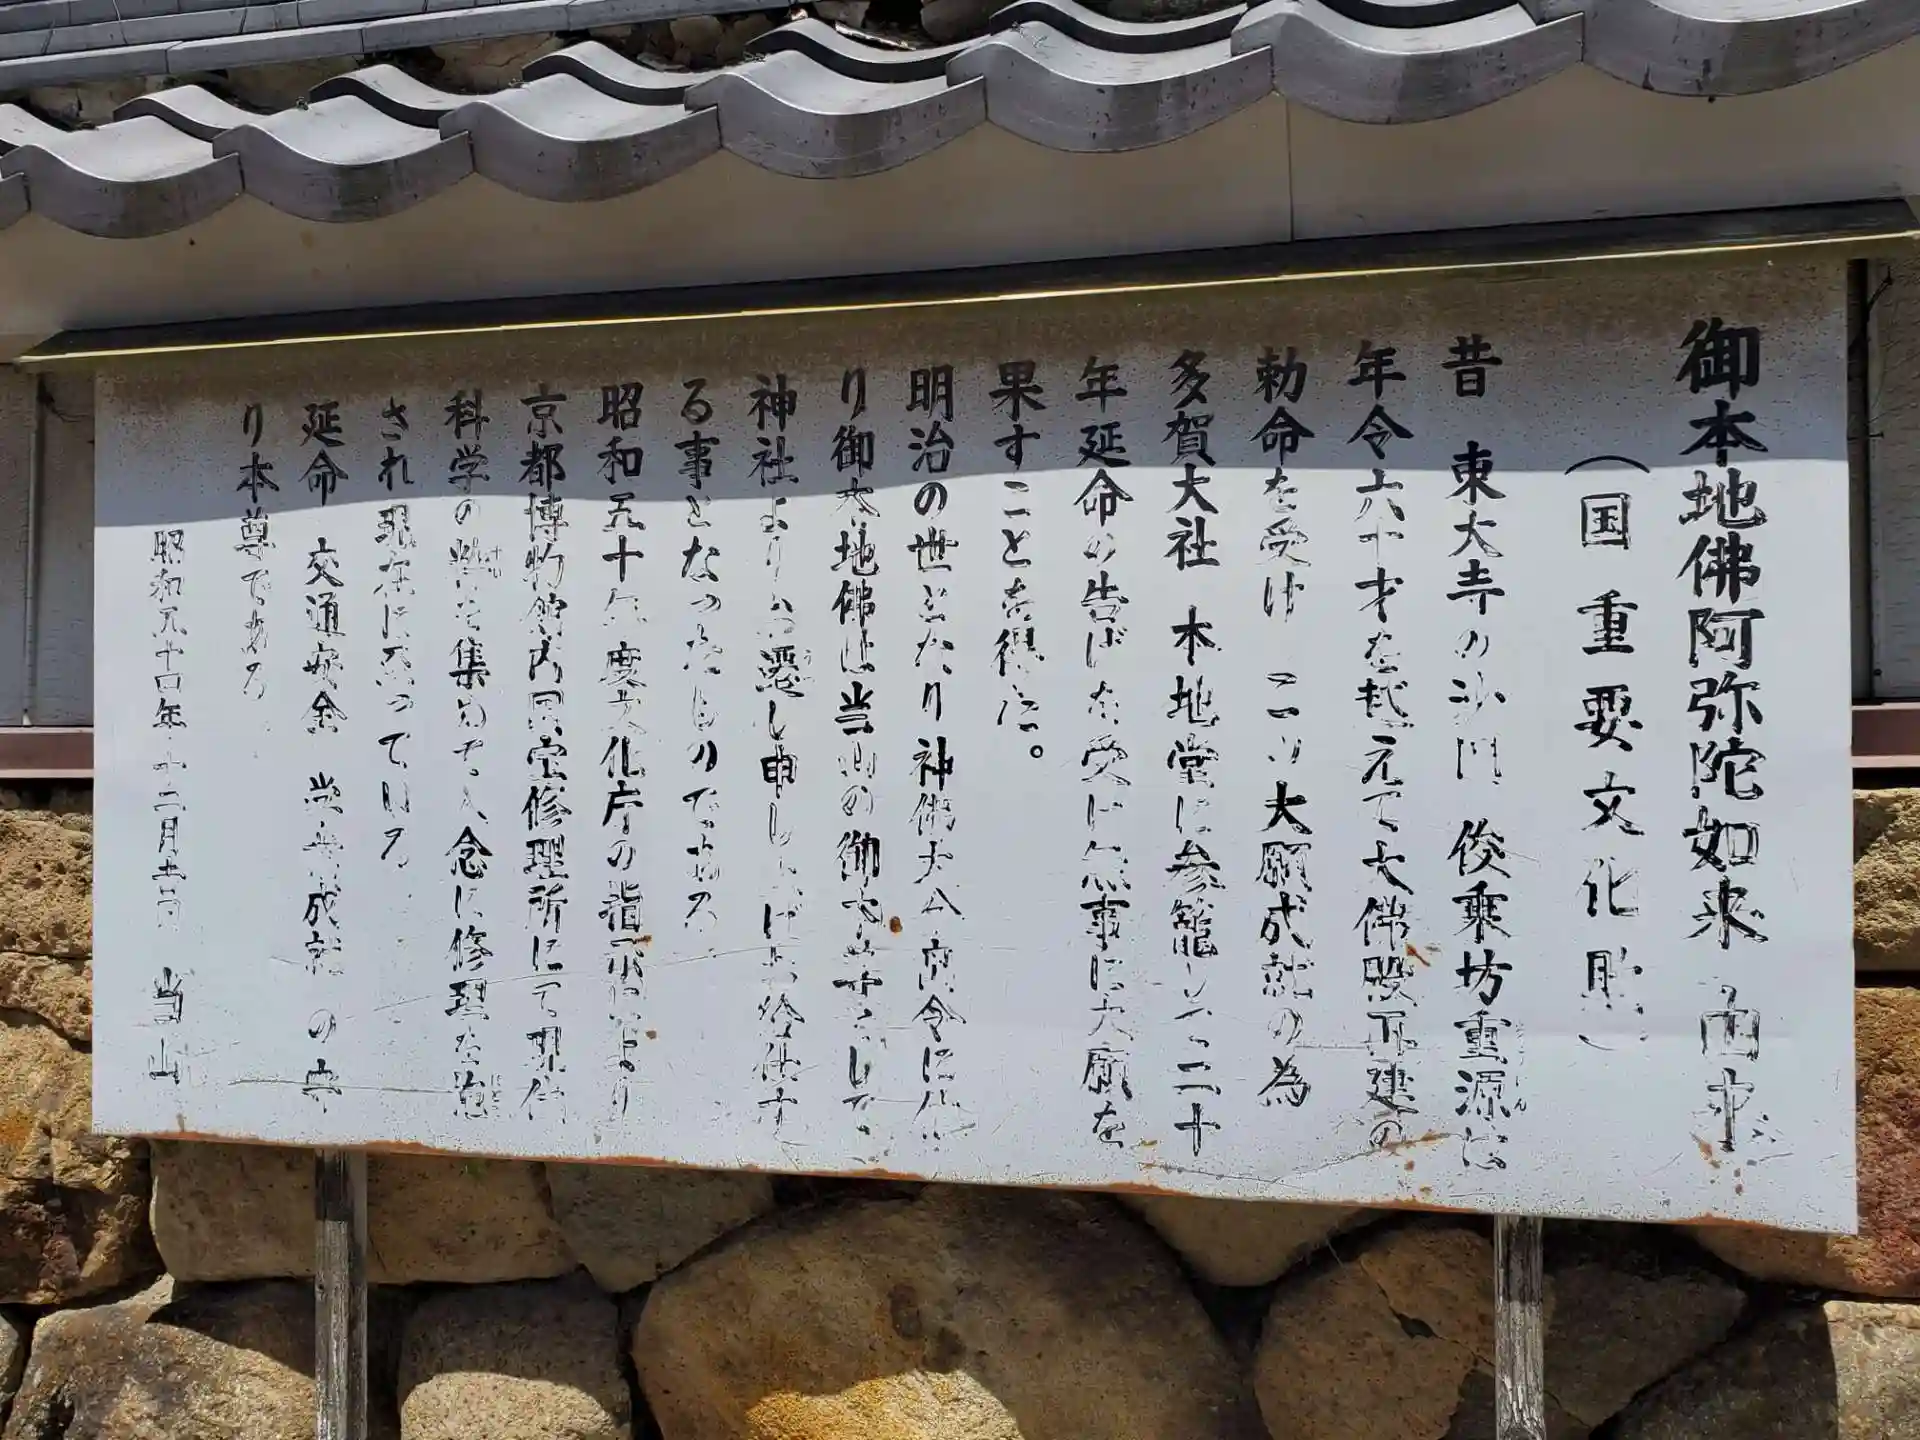 御本地佛阿弥陀如来 由来
(国重要文化財)
昔 東大寺の沙門 俊乗坊重源は
年令六十才を越えて大佛殿再建の
勅命を受け この大願成就の為
多賀大社 本地堂に参籠し 二十
年延命の告げを受け無事に大願を
果すことを得た。
明治の世となり神佛分離令に
り御本地佛は当山の御本尊として
神社より し申し上げお給仕す
る事となったものである
昭和五十年度文化庁の指示により
京都博物館内国宝修理所にて現代
科学の粋を集めて入念に修理を
され現在に至っている
延命 交通安全 満足成就 の守
り本尊である
昭和五十四年十二月吉日 当山